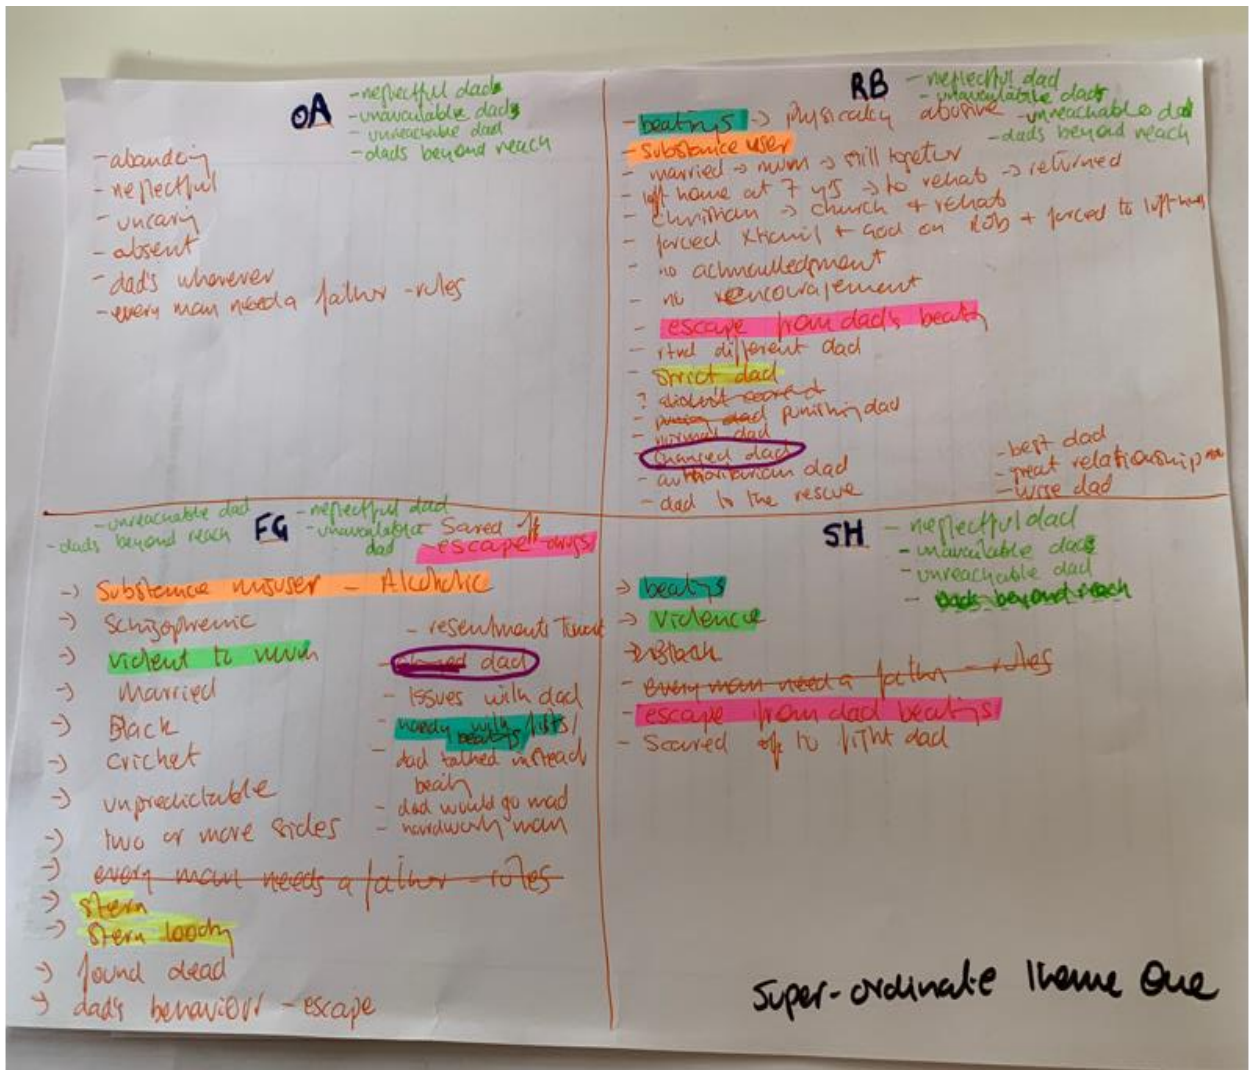 OA
- neglectful dads
- unavailable dads
- unreachable dad
- dads beyond reach
- neglectful
- uncaring
- absent
- dad's wherever
- every man need a father - rules
RB
- neglectful dad
- unavailable dads
- unreachable dad
- dads beyond reach
- beatings -> physically abusive
- substance user
- married -> mum -> still together
- left home at 7 yrs -> to rehab -> returned
- Christian -> church + rehab
- forced + God on Rob + forced to left-
- no
- no encouragement
- escape from dad's
- different dad
- strict dad
? didn't
- punishing dad
- normal dad
- changed dad
- authoritarian dad
- dad to the rescue
- best dad
- great relationship
- wise dad
FG
- unreachable dad
- dads beyond reach
- neglectful dad
- unavailable dad
- escape - drugs
-> Substance misuser - Alcoholic
-> Schizophrenic
-> violent to mum
-> Married
-> Black
-> Cricket
-> unpredictable
-> two or more sides
-> every man needs a father - rules
-> stern
-> stern
-> found dead
-> dad's behaviour - escape
- resentments
- dad
- Issues with dad
- handy with fists/
beatings
- dad talked instead
- dad would go mad
- man
SH
- neglectful dad
- unavailable dads
- unreachable dad
- dads beyond reach
-> beatings
-> violence
-> Black
- every man need a father - rules
- escape from dad beatings
- Scared of to fight dad
Super-ordinate Theme One